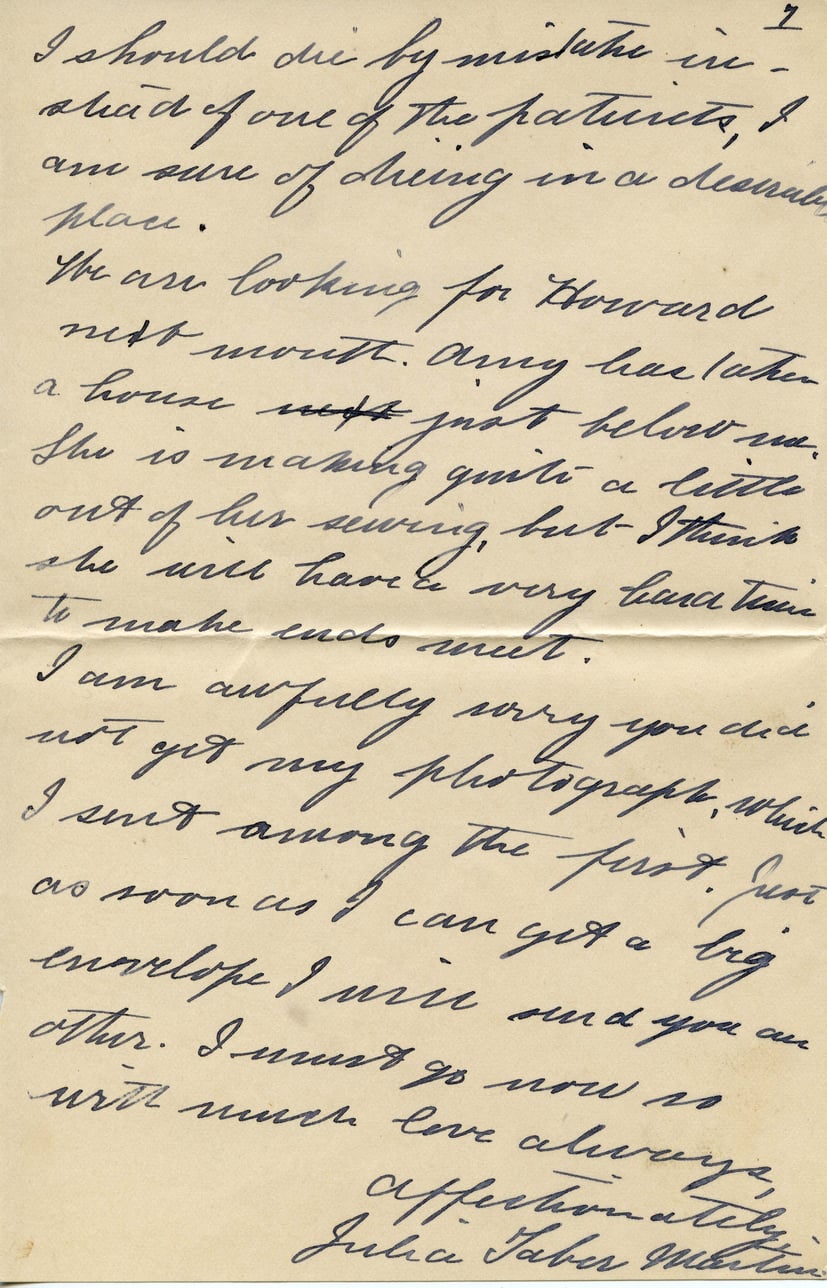 7
I should die by mistake in-
stead of one of the patients, I
am sure of dieing in a desirable
place.
We are looking for Howard
next month. Amy has taken
a house next just below me.
She is making quite a little
out of her sewing, but I think
she will have a very hard time
to make ends meet.
I am awfully sorry you did
not get my photograph, which
I sent among the first. Just
as soon as I can get a big
envelope I will send you an
other. I must go now so
with much love always,
affectionately
Julia Taber Martin